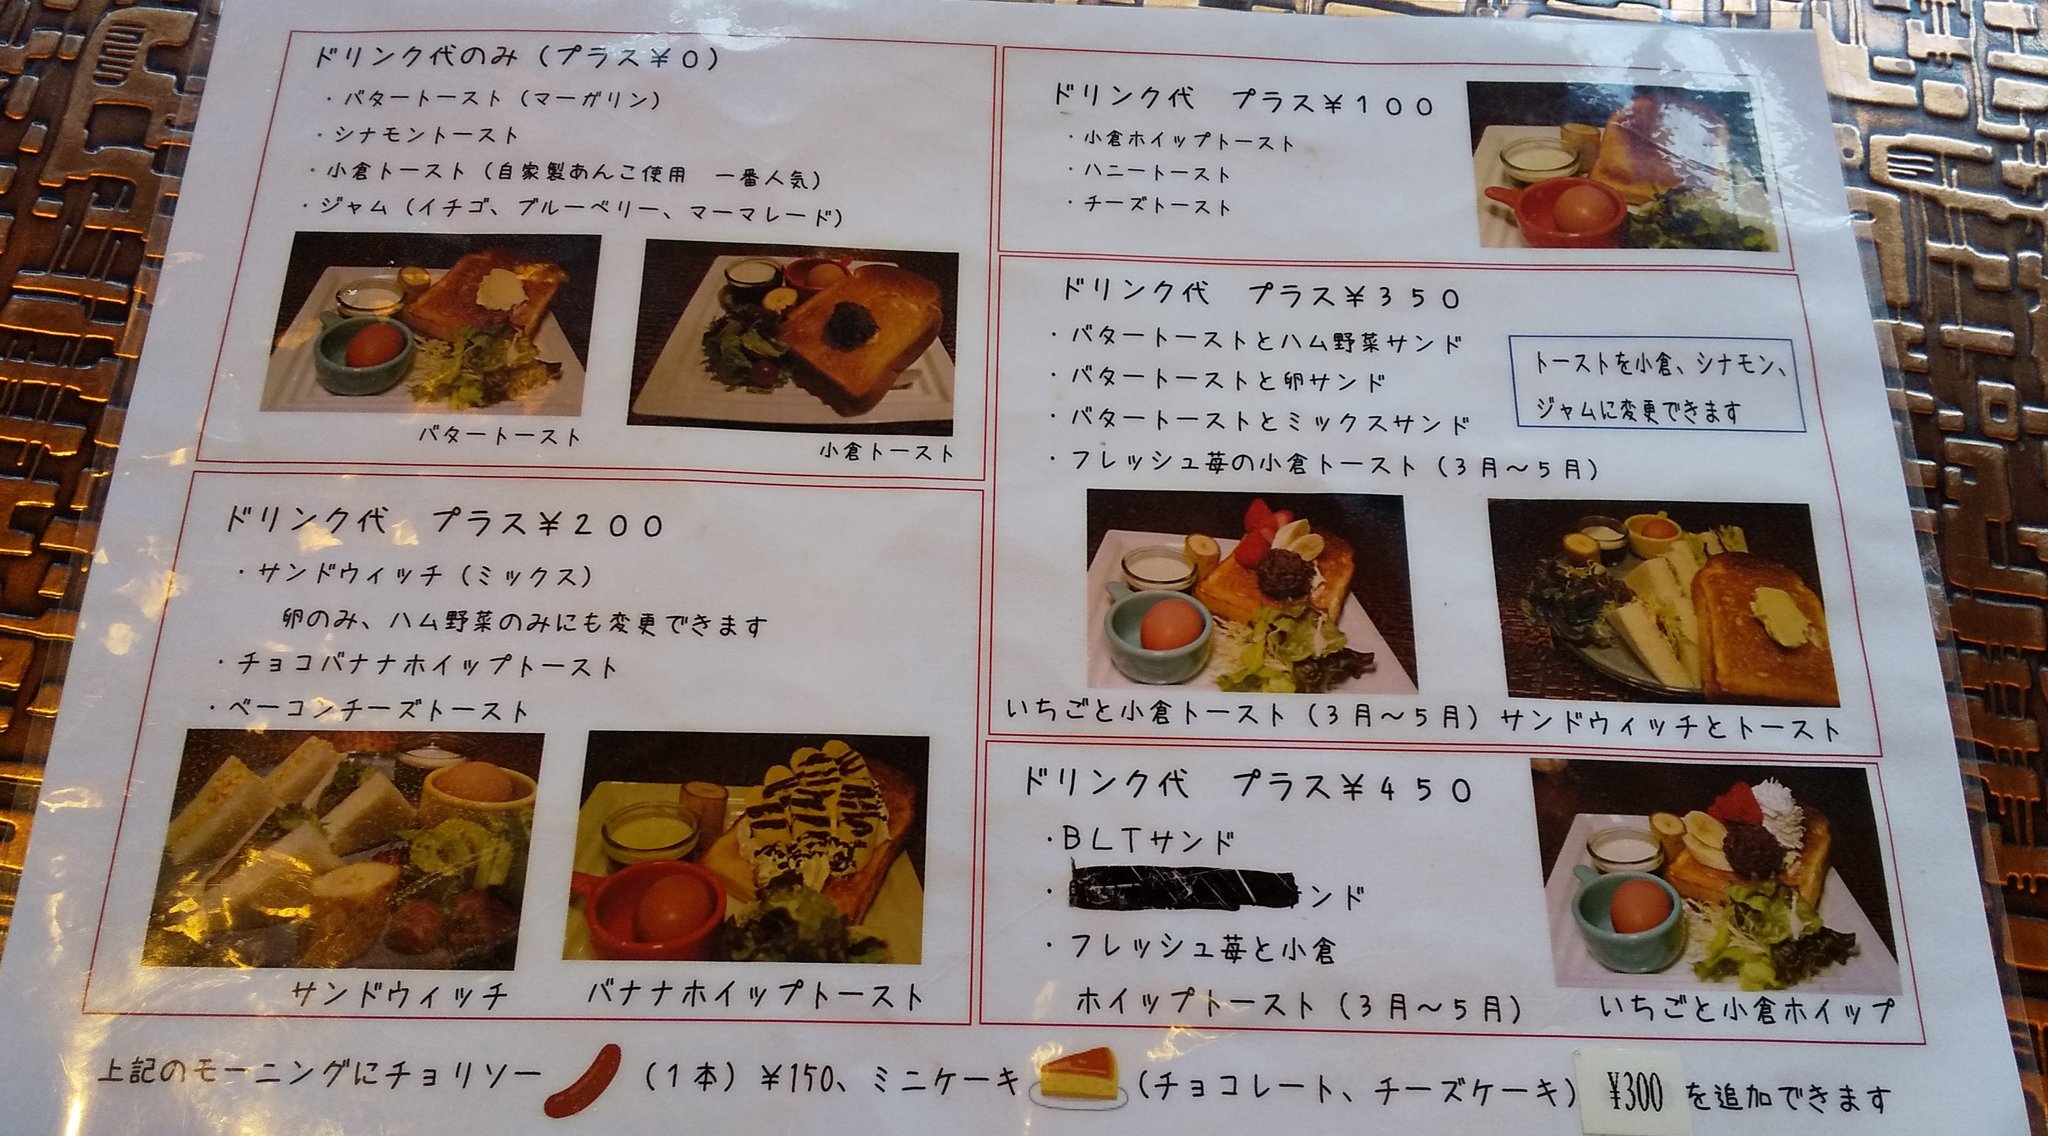 ドリンク代のみ（プラス￥０）
・バタートースト（マーガリン）
・シナモントースト
・小倉トースト（自家製あんこ使用　一番人気）
・ジャム（イチゴ、ブルーベリー、マーマレード）
バタートースト
小倉トースト
ドリンク代　プラス￥２００
・サンドウィッチ（ミックス）
卵のみ、ハム野菜のみにも変更できます
・チョコバナナホイップトースト
・ベーコンチーズトースト
サンドウィッチ
バナナホイップトースト
ドリンク代　プラス￥１００
・小倉ホイップトースト
・ハニートースト
・チーズトースト
ドリンク代　プラス￥３５０
・バタートーストとハム野菜サンド
・バタートーストと卵サンド
・バタートーストとミックスサンド
・フレッシュ苺の小倉トースト（３月～５月）
トーストを小倉、シナモン、
ジャムに変更できます
いちごと小倉トースト（３月～５月）
サンドウィッチとトースト
ドリンク代　プラス￥４５０
・ＢＬＴサンド
・サンド
・フレッシュ苺と小倉
ホイップトースト（３月～５月）
いちごと小倉ホイップ
上記のモーニングにチョリソー（１本）￥150、ミニケーキ（チョコレート、チーズケーキ）¥300を追加できます